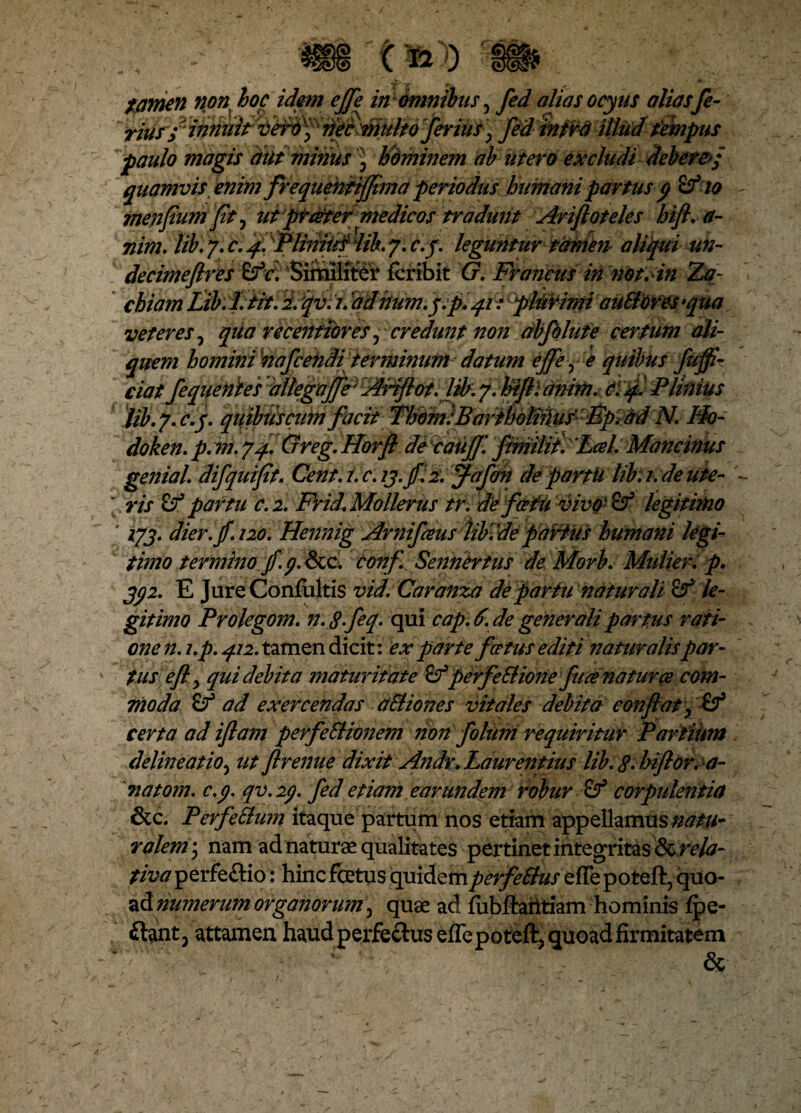 ( 12 )
tamen non hoc idem esse in omnibus, sed alias ocyus alias se-
rius; innuit vero, nec multo serius, sed intra illud tempus
paulo magis aut minus, hominem ab utero excludi debere;
quamvis enim frequentissima periodus humani partus 9 & 10
mensium sit, ut præter medicos tradunt Aristoteles hist. a-
nim. lib. 7. c. 4. Plinius lib. 7. c. 5. leguntur tamen aliqui un-
decimestres &c. Similiter scribit G. Francus in not. in Za-
chiam Lib. 1. tit. 2. qv. 1. ad num. 5. p. 41: plurimi auctores qua
veteres, qua recentiores, credunt non absolute certum ali-
quem homini nascendi terminum datum esse, e quibus suffi-
ciat sequentes allegasse Aristot. lib. 7. hist. anim. c. 4. Plinius
lib. 7. c. 5. quibuscum facit Thom. Bartholinus Ep. ad N. Ho-
doken. p. m. 74. Greg. Horst de causs. similit. Læl. Mancinus
genial. disquisit. Cent. 1. c. 13. s. 2. Jason de partu lib. 1. de ute-
ris & partu c. 2. Frid. Mollerus tr. de fœtu vivo & legitimo
173. dier. s. 120. Hennig Arnisæus lib. de partus humani legi-
timo termino s. 9. &c. conf. Sennertus de Morb. Mulier. p.
392. E Jure Consultis vid. Caranza de partu naturali & le-
gitimo Prolegom. n. 8. seq. qui cap. 6. de generali partus rati-
one n. 1. p. 412. tamen dicit: ex parte fœtus editi naturalis par-
tus est, qui debita maturitate & perfectione suæ naturæ com-
moda & ad exercendas actiones vitales debita constat, &
certa ad istam perfectionem non solum requiritur Partium
delineatio, ut strenue dixit Andr. Laurentius lib. 8. histor. a-
natom. c. 9. qv. 29. sed etiam earundem robur & corpulentia
&c. Perfectum itaque partum nos etiam appellamus natu-
ralem; nam ad naturæ qualitates pertinet integritas & rela-
tiva perfectio: hinc fœtus quidem perfectus esse potest, quo-
ad numerum organorum, quæ ad substantiam hominis spe-
ctant, attamen haud perfectus esse potest, quoad firmitatem
&